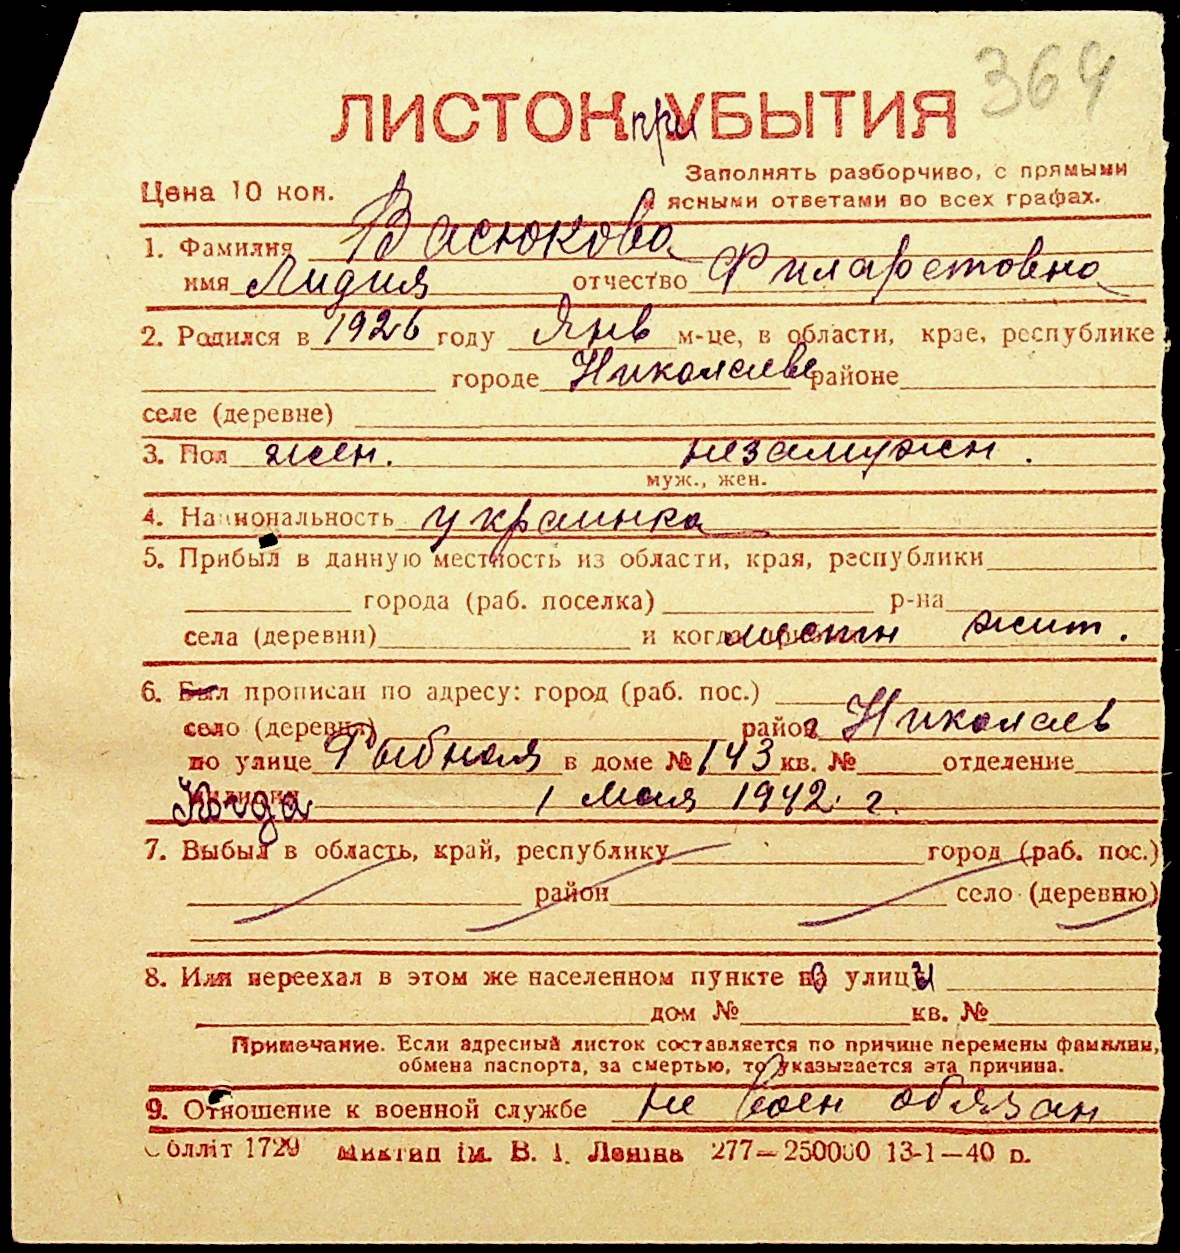 364
ЛИСТОК при УБЫТИЯ
Заполнять разборчиво, с прямыми
Цена 10 коп. и ясными ответами во всех графах.
1. Фамилия Васюкова
имя Лидия отчество Филаретовна
2. Родился в 1926 году Янв м-це, в области, крае, республике
городе Николаеве районе
селе (деревне)
3. Пол жен. незамужн.
муж., жен.
4. Национальность украинка
5. Прибыл в данную местность из области, края, республики
города (раб. поселка) р-на
села (деревни) и когда местн жит.
6. Был прописан по адресу: город (раб. пос.)
село (деревня) район г Николаев
по улице Рыбная в доме № 143 кв. № отделение
милиции Когда 1 мая 1942 г.
7. Выбыл в область, край, республику город (раб. пос.)
район село (деревню)
8. Или переехал в этом же населенном пункте с улицы
дом № кв. №
Примечание. Если адресный листок составляется по причине перемены фамилии,
обмена паспорта, за смертью, то указывается эта причина.
9. Отношение к военной службе не воен обязан
Облліт 1729 Миктип ім. В. І. Леніна 277—250000 13-1—40 р.